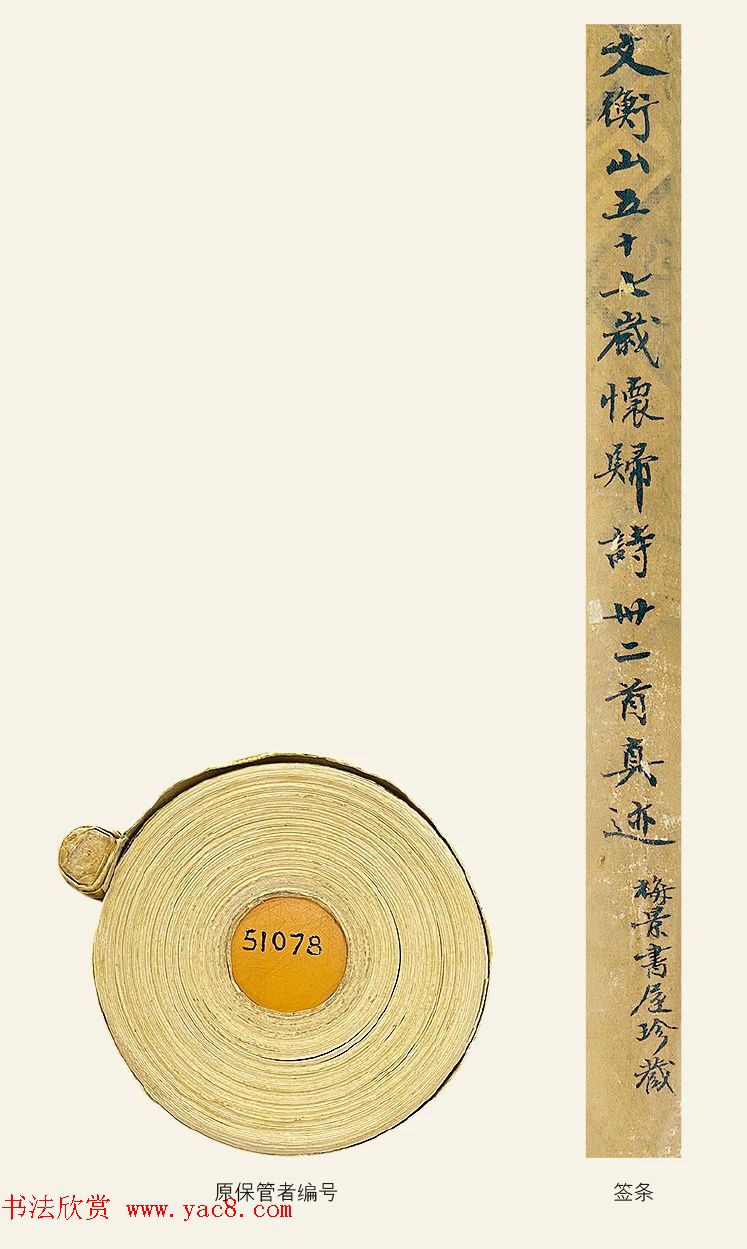 文衡山五十七歲懷歸詩卅二首真迹
梅景書屋珍藏
51078
原保管者编号
签条
书法欣赏 www.yac8.com